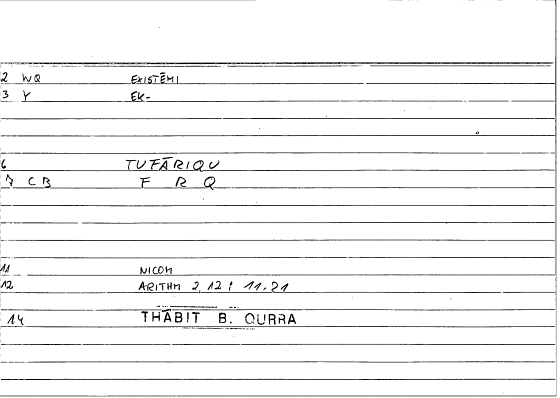 2 WQ EXISTĒMI
3 Y EK-
6 TUFĀRIQU
7 C B F R Q
11 NICOM
12 ARITHM 2, 12 : 11, 21
14 THĀBIT B. QURRA